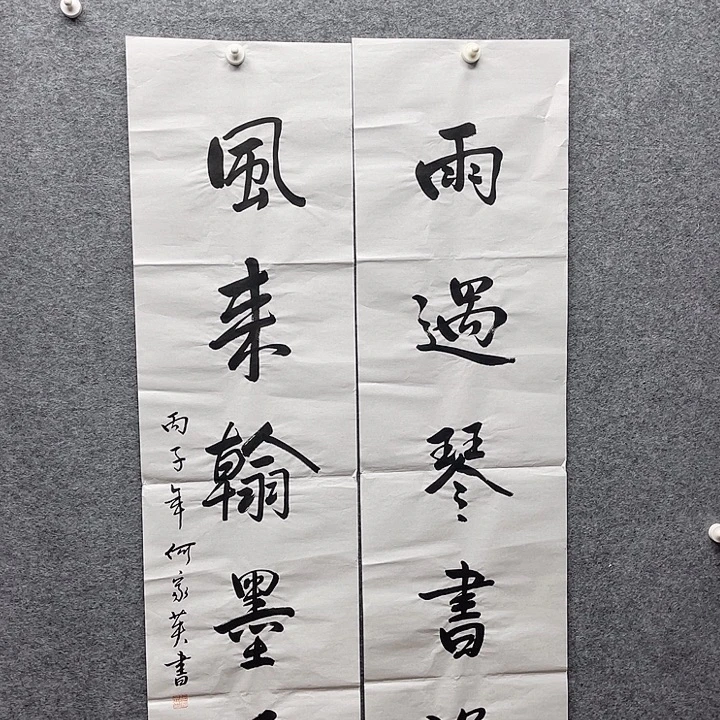 雨過琴書
風来翰墨
丙子年何家英書